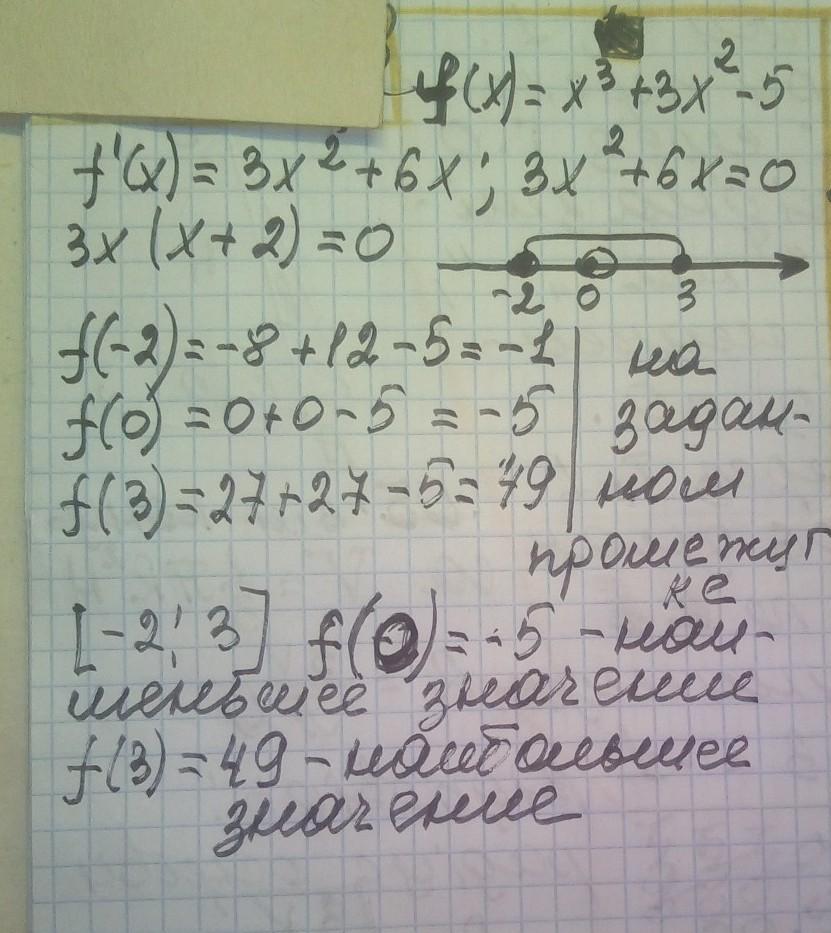 f(x) = x³ + 3x² - 5
f'(x) = 3x² + 6x; 3x² + 6x = 0
3x (x + 2) = 0
-2 0 3
f(-2) = -8 + 12 - 5 = -1
f(0) = 0 + 0 - 5 = -5
f(3) = 27 + 27 - 5 = 49
на
задан-
ном
промежут
ке
[-2; 3] f(0) = -5 - наи-
меньшее значение
f(3) = 49 - наибольшее
значение